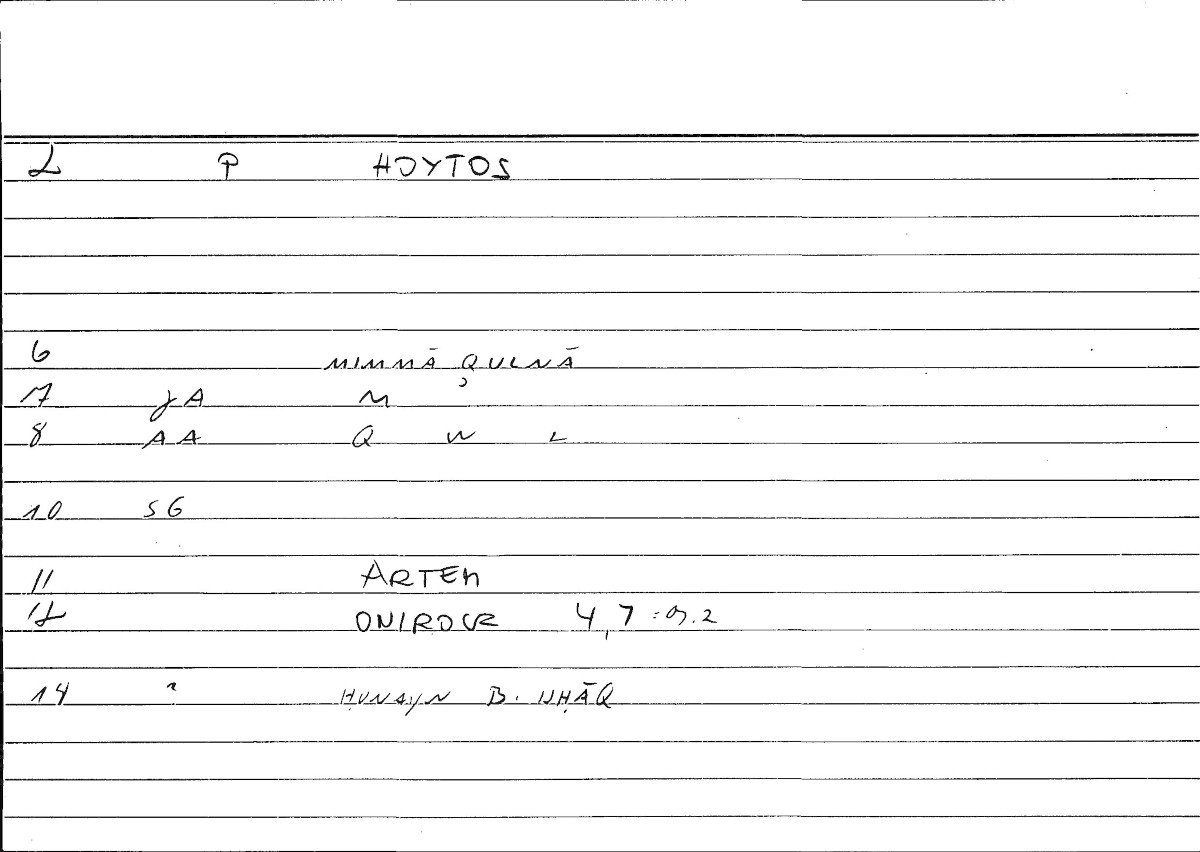 2 P HOYTOS
6 MIMMĀ QULNĀ
7 JA M
8 AA Q W L
10 SG
11 ARTEM
12 ONIROCR 4,7 :
14 HUNAYN B. ISḤĀQ